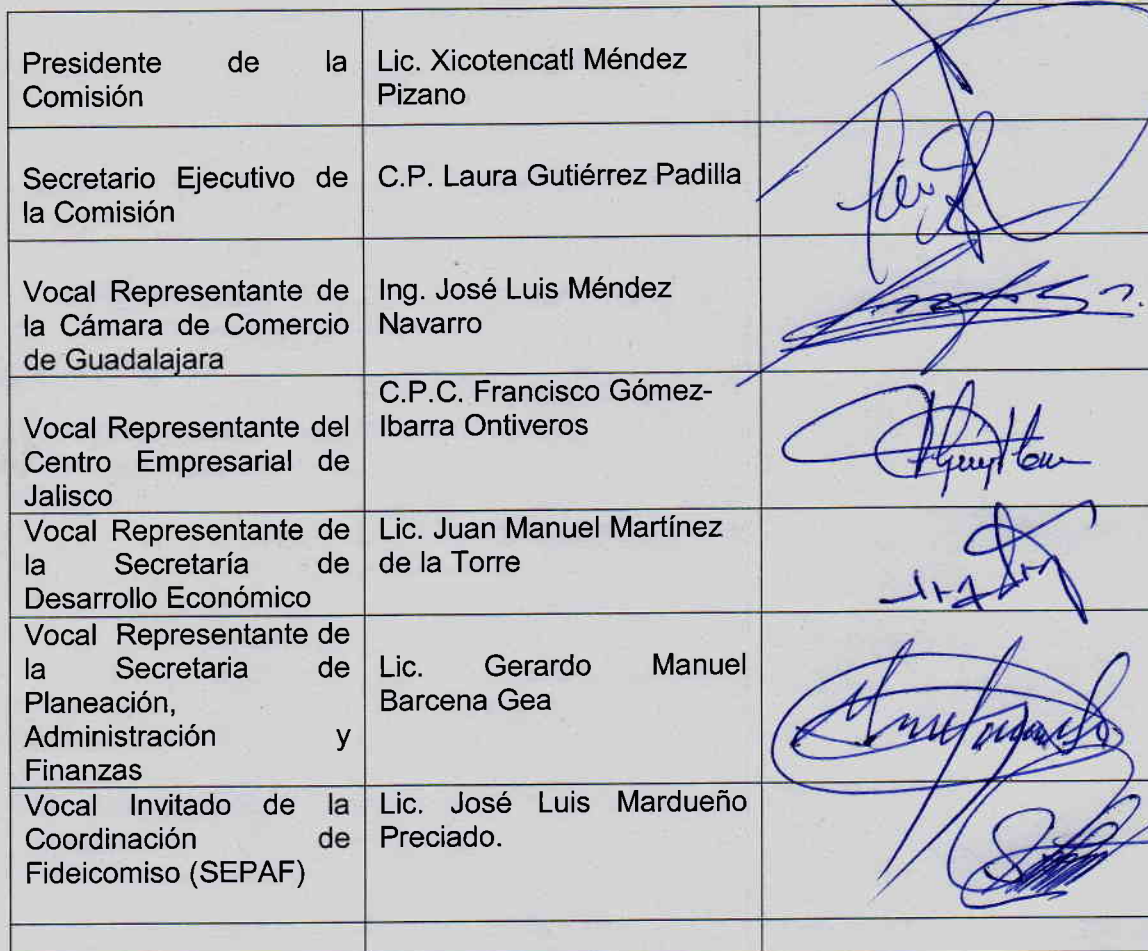 Presidente de la
Comisión
Lic. Xicotencatl Méndez
Pizano
Secretario Ejecutivo de
la Comisión
C.P. Laura Gutiérrez Padilla
Vocal Representante de
la Cámara de Comercio
de Guadalajara
Ing. José Luis Méndez
Navarro
Vocal Representante del
Centro Empresarial de
Jalisco
C.P.C. Francisco Gómez-
Ibarra Ontiveros
Vocal Representante de
la Secretaría de
Desarrollo Económico
Lic. Juan Manuel Martínez
de la Torre
Vocal Representante de
la Secretaria de
Planeación,
Administración y
Finanzas
Lic. Gerardo Manuel
Barcena Gea
Vocal Invitado de la
Coordinación de
Fideicomiso (SEPAF)
Lic. José Luis Mardueño
Preciado.